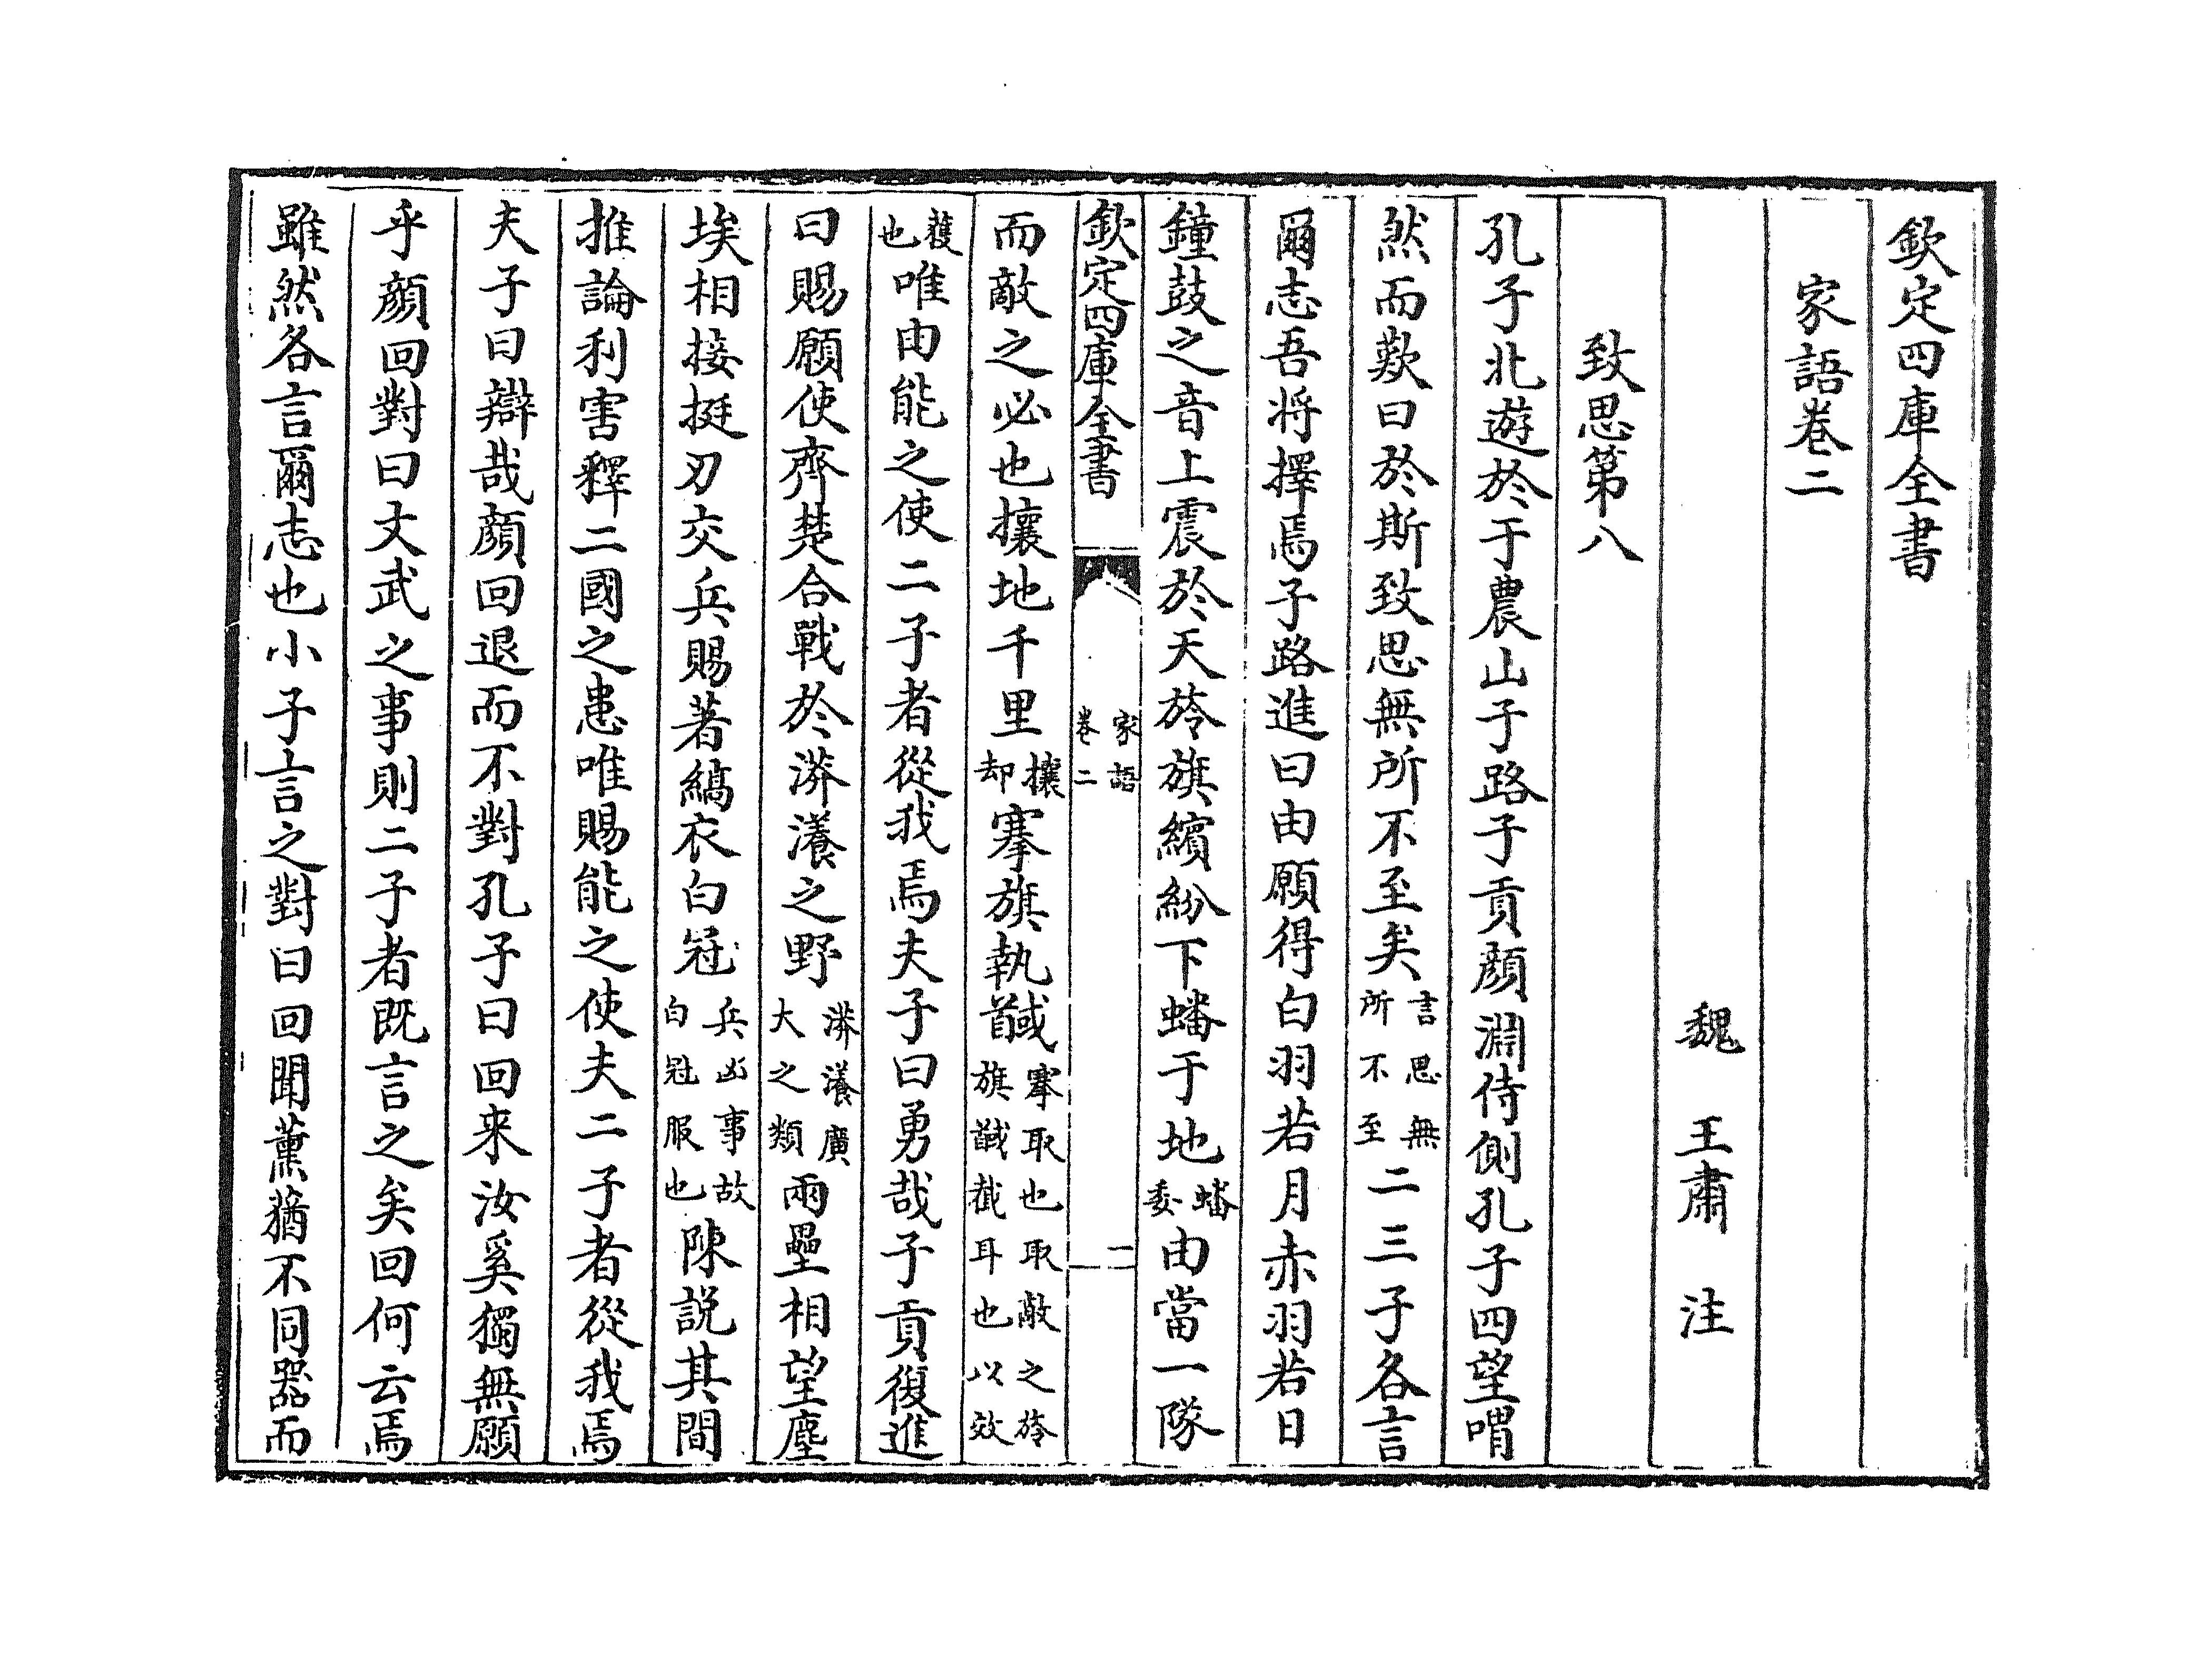 欽定四庫全書
家語卷二
魏　王肅　注
致思第八
孔子北遊於于農山子路子貢顔淵侍側孔子四望喟
然而歎曰於斯致思無所不至矣言思無所不至二三子各言
爾志吾将擇焉子路進曰由願得白羽若月赤羽若日
鐘鼓之音上震於天旍旗繽紛下蟠于地蟠委由當一隊
欽定四庫全書
家語
卷二
一
而敵之必也攘地千里攘却搴旗執馘搴取也取敵之旍旗馘截耳也以效
獲也唯由能之使二子者從我焉夫子曰勇哉子貢復進
曰賜願使齊楚合戰於漭瀁之野漭瀁廣大之類兩壘相望塵
埃相接挺刃交兵賜著縞衣白冠兵凶事故白冠服也陳説其間
推論利害釋二國之患唯賜能之使夫二子者從我焉
夫子曰辯哉顔回退而不對孔子曰回来汝奚獨無願
乎顔回對曰文武之事則二子者既言之矣回何云焉
雖然各言爾志也小子言之對曰回聞薫蕕不同器而